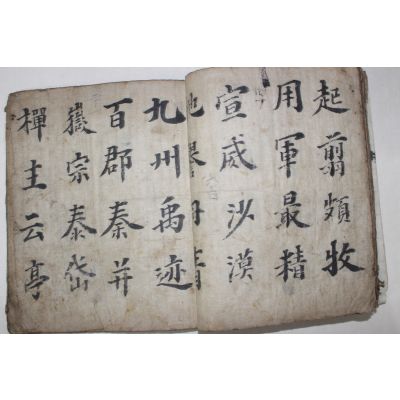 起翦頗牧
用軍最精
宣威沙漠
九州禹迹
百郡秦并
嶽宗泰岱
禪主云亭